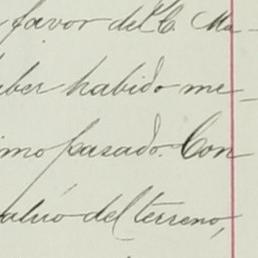 favor del C. Ma-
aber habido me-
imo pasado. Con
avalúo del terreno,